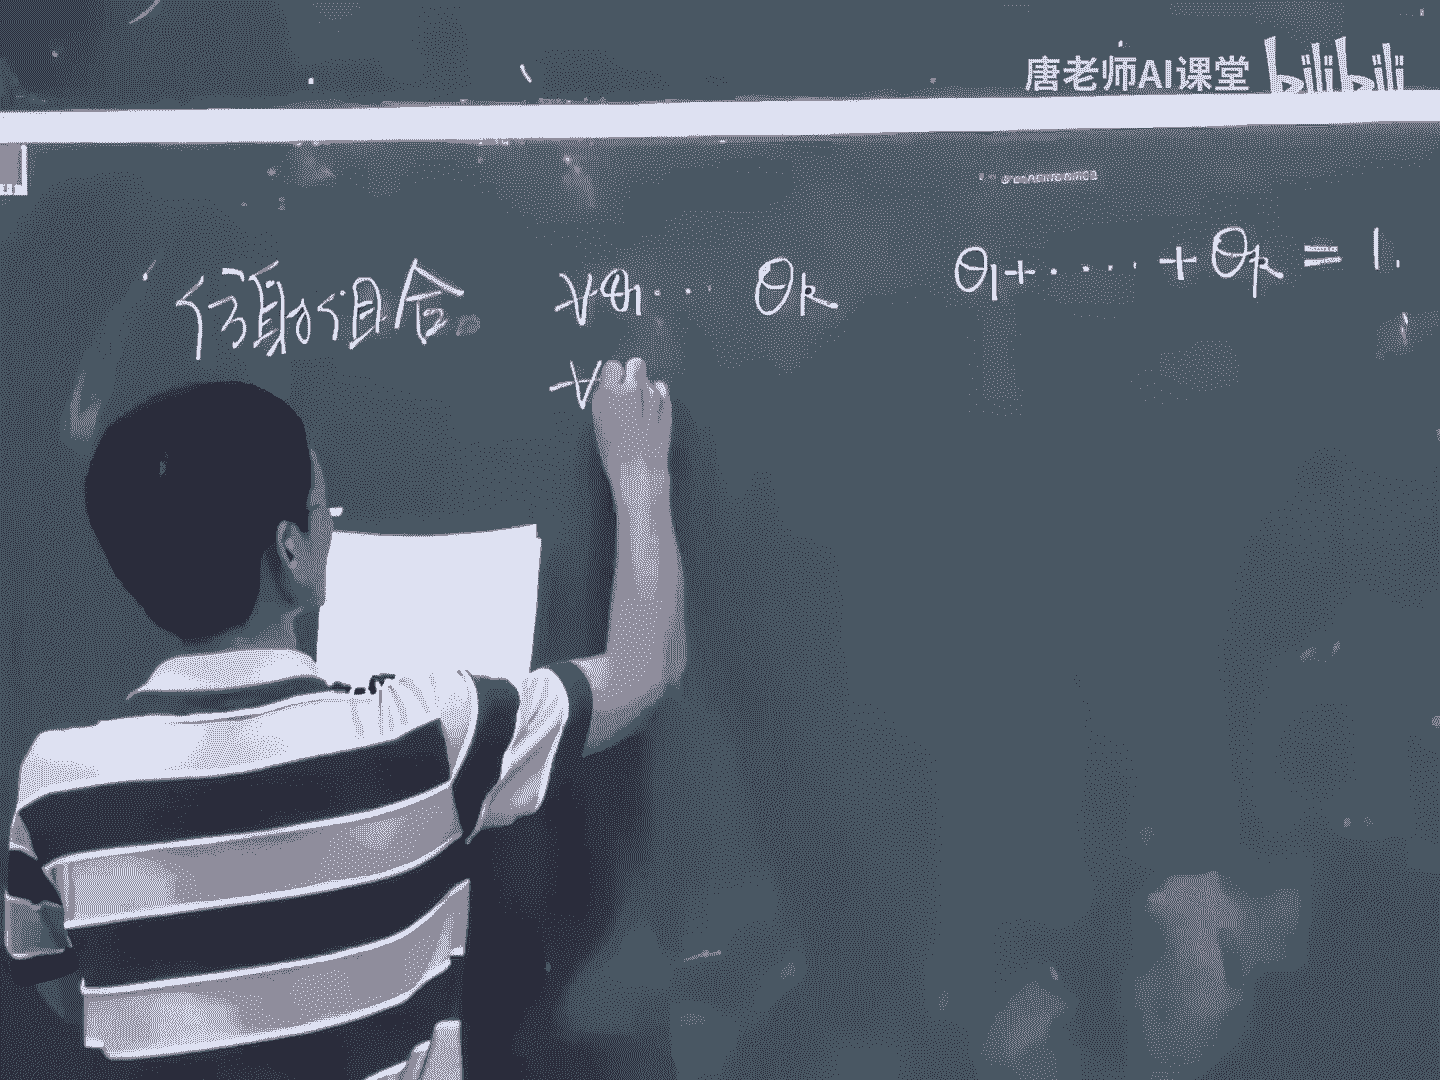 唐老师AI课堂 bilibili
仿射组合 ∀θ₁… θₖ θ₁+……+θₖ=1.
∀